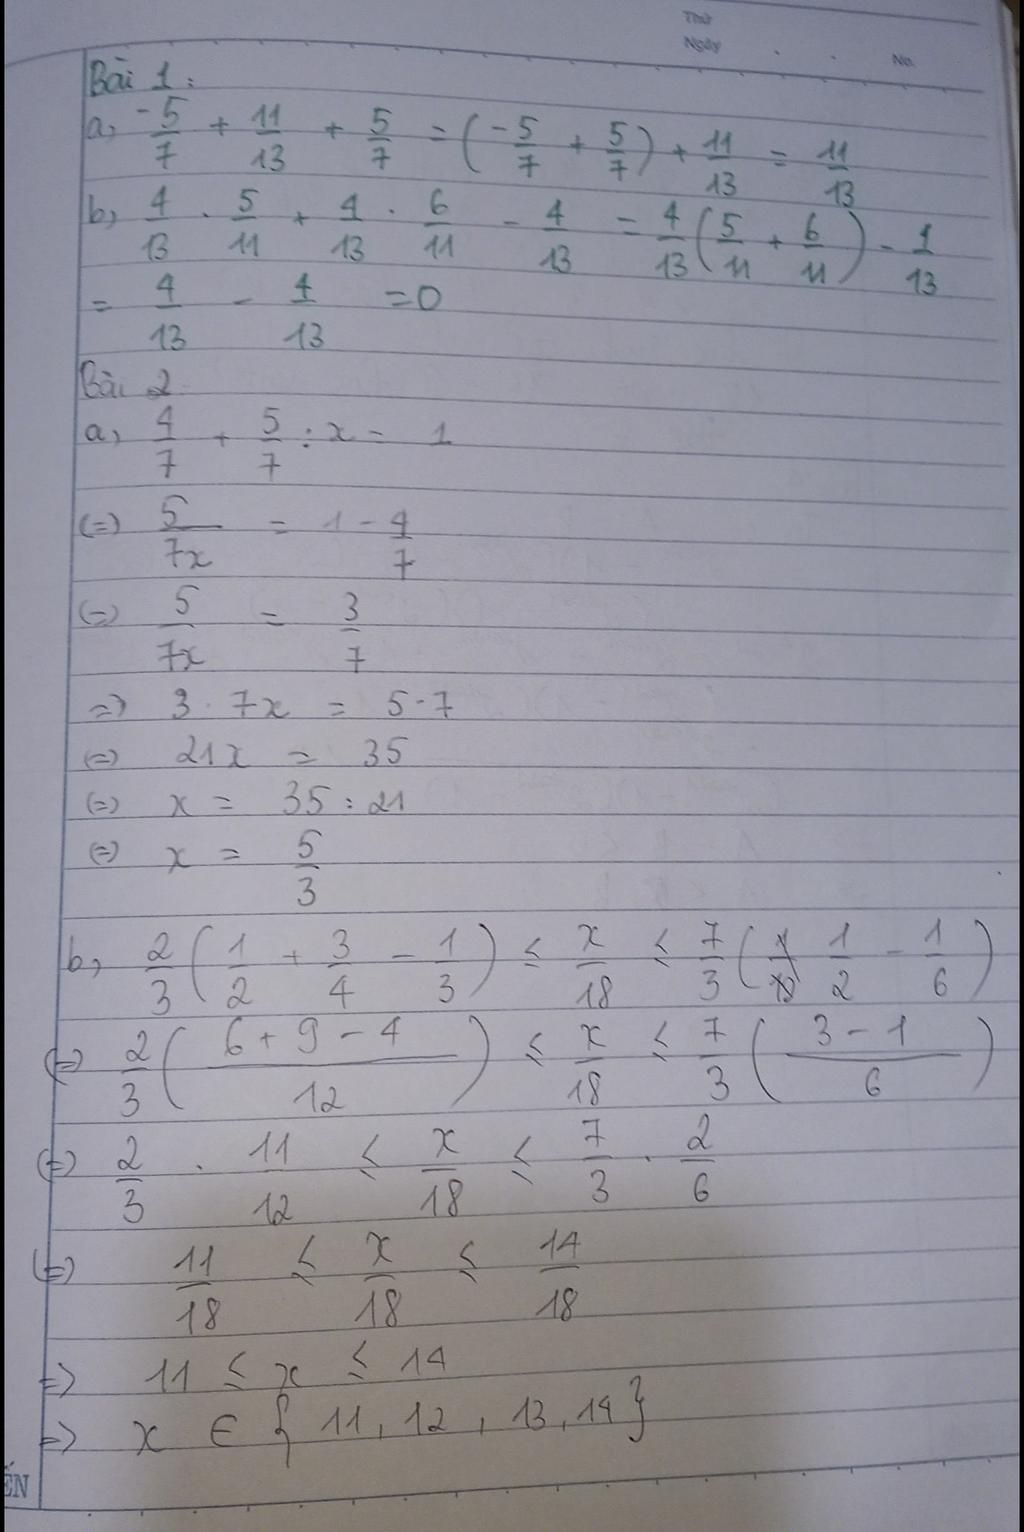 Thứ
Ngày . . No.
Bài 1:
a, -5/7 + 11/13 + 5/7 = (-5/7 + 5/7) + 11/13 = 11/13
b, 4/13 . 5/11 + 4/13 . 6/11 - 4/13 = 4/13 (5/11 + 6/11) - 4/13
= 4/13 - 4/13 = 0
Bài 2
a, 4/7 + 5/7 : x = 1
(=) 5/7x = 1 - 4/7
(=) 5/7x = 3/7
=> 3 . 7x = 5 . 7
(=) 21x = 35
(=) x = 35 : 21
(=) x = 5/3
b, 2/3 (1/2 + 3/4 - 1/3) ≤ x/18 ≤ 7/3 (1/2 - 1/6)
(=) 2/3 ((6 + 9 - 4)/12) ≤ x/18 ≤ 7/3 ((3 - 1)/6)
(=) 2/3 . 11/12 ≤ x/18 ≤ 7/3 . 2/6
(=) 11/18 ≤ x/18 ≤ 14/18
=> 11 ≤ x ≤ 14
=> x ∈ {11, 12, 13, 14}
ẾN